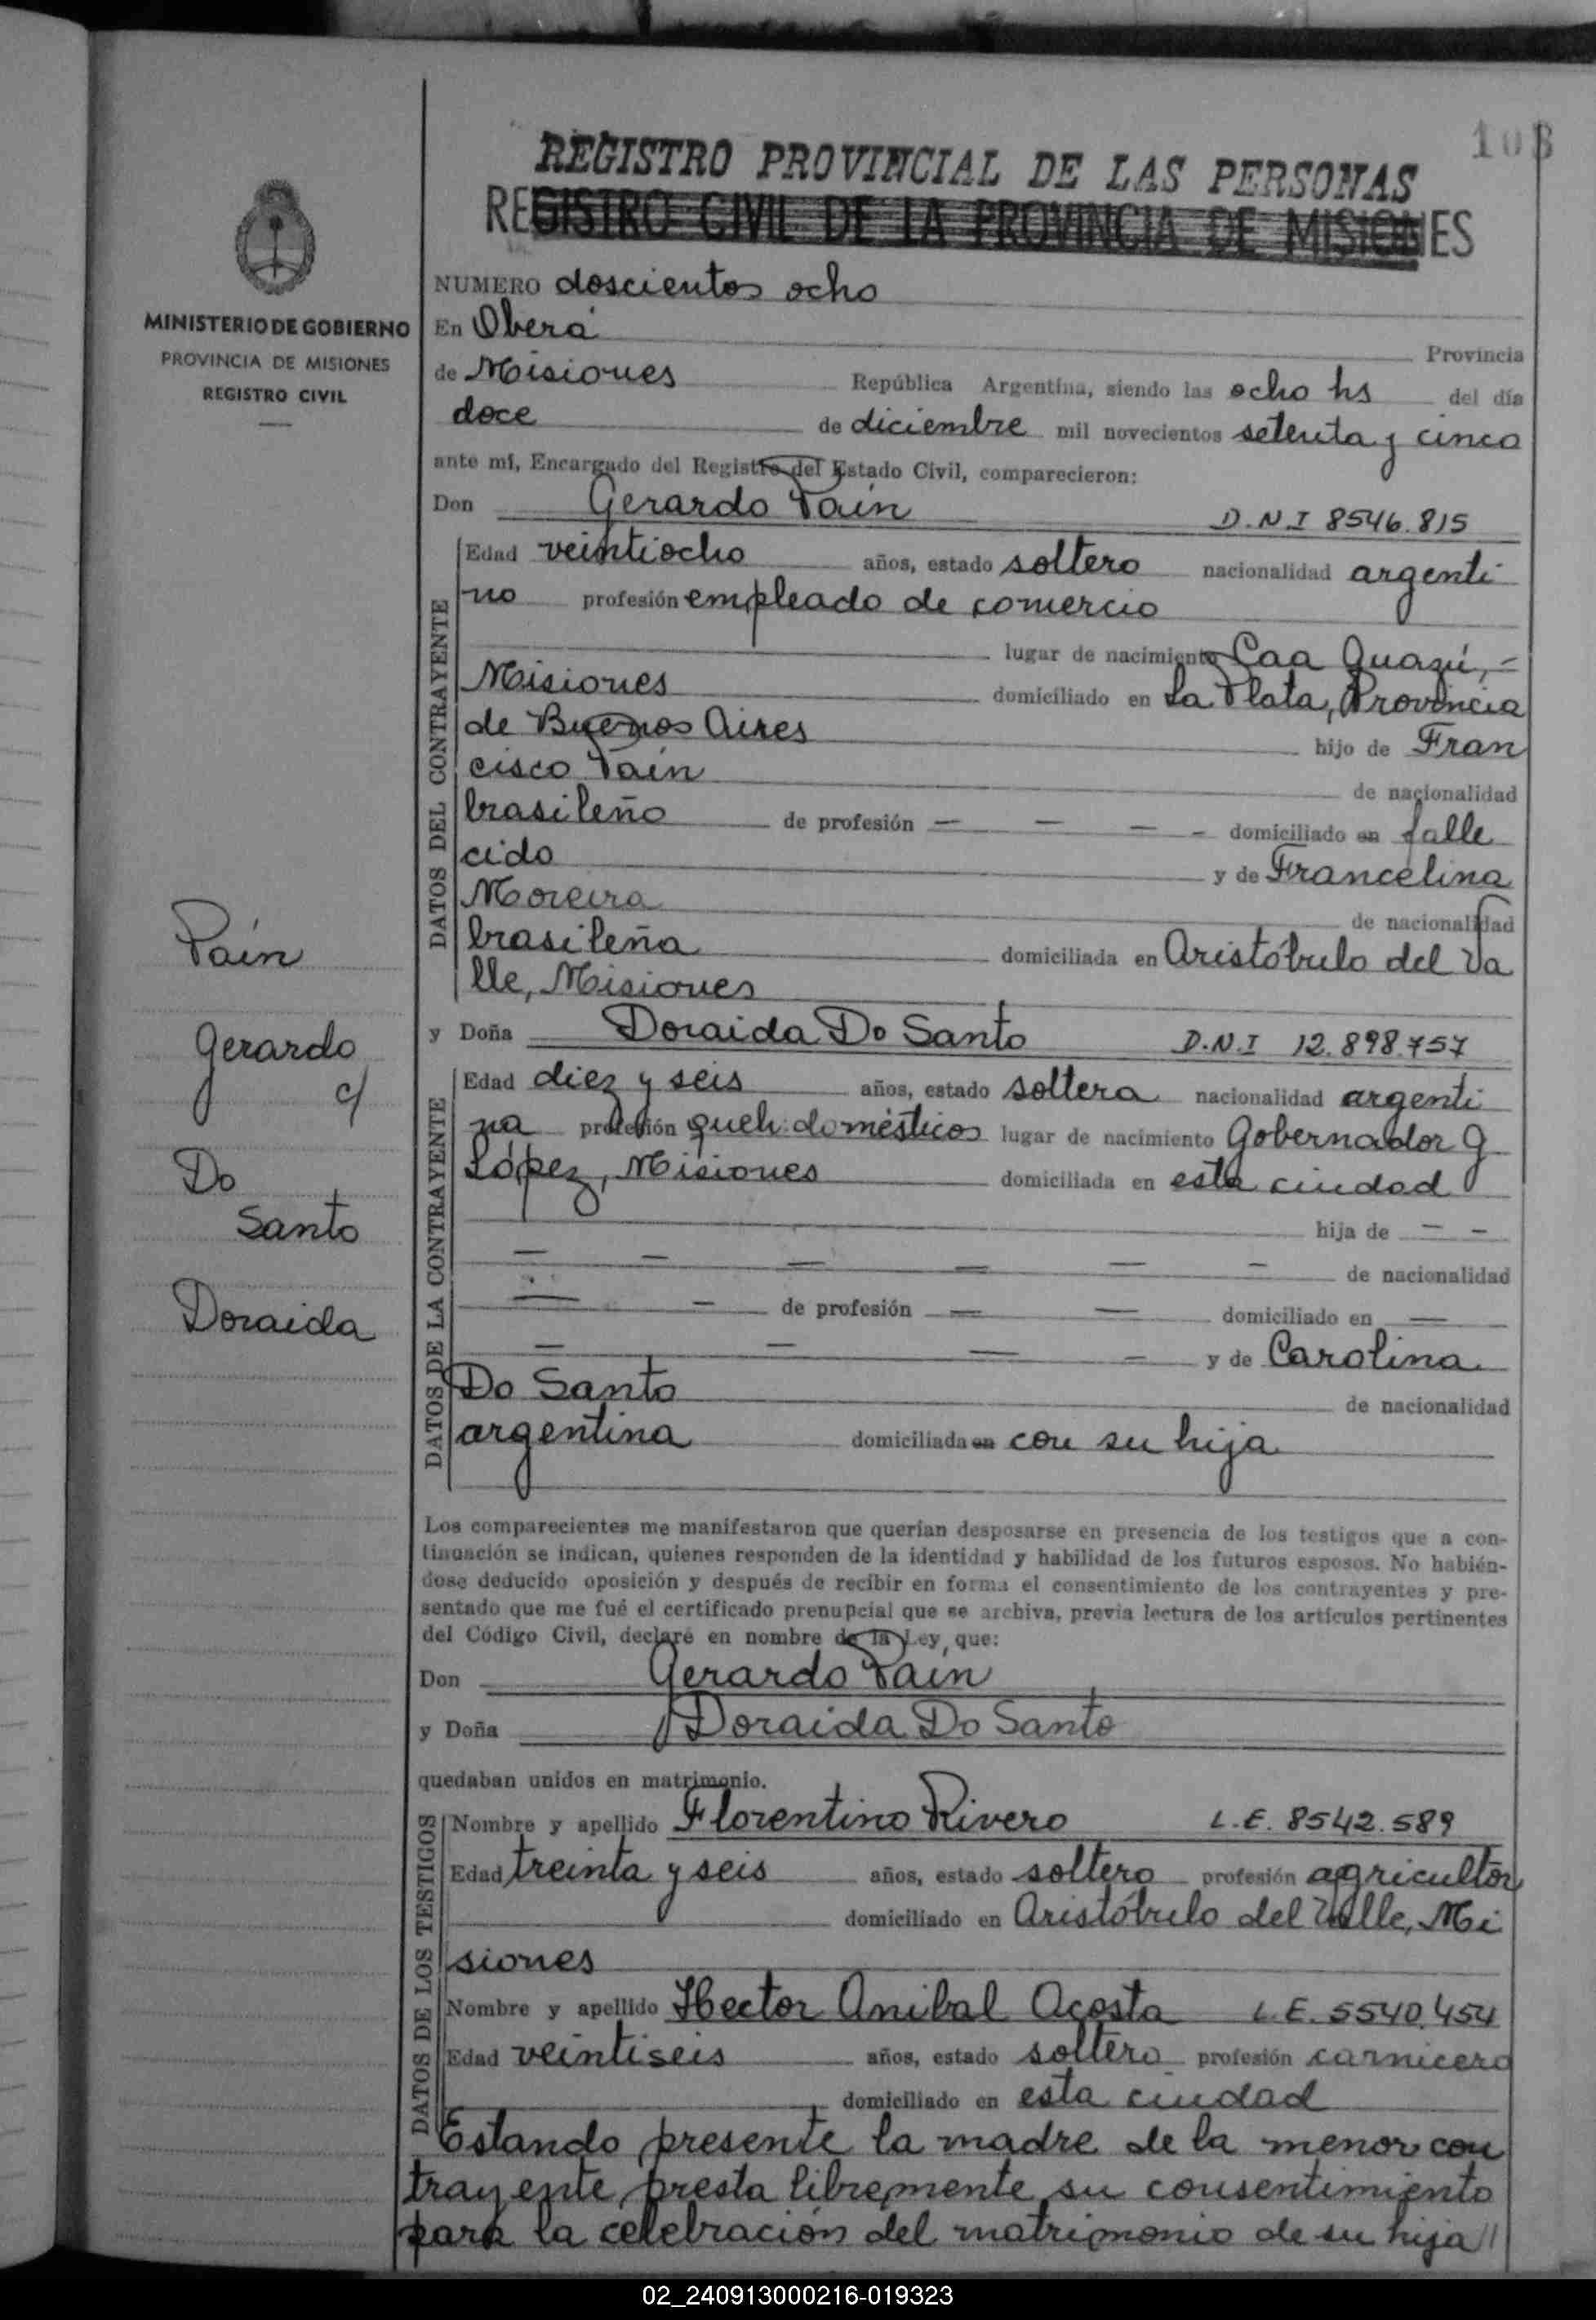 108
REGISTRO PROVINCIAL DE LAS PERSONAS
REGISTRO CIVIL DE LA PROVINCIA DE MISIONES
MINISTERIO DE GOBIERNO
PROVINCIA DE MISIONES
REGISTRO CIVIL
NUMERO doscientos ocho
En Oberá Provincia
de Misiones República Argentina, siendo las ocho hs del día
doce de diciembre mil novecientos setenta y cinco
ante mí, Encargado del Registro del Estado Civil, comparecieron:
Don Gerardo Paín D.N.I 8546.815
DATOS DEL CONTRAYENTE
Edad veintiocho años, estado soltero nacionalidad argenti
no profesión empleado de comercio
lugar de nacimiento Caa Guazú, -
Misiones domiciliado en La Plata, Provincia
de Buenos Aires hijo de Fran
cisco Paín
de nacionalidad
brasileño de profesión — — — - domiciliado en falle
cido y de Francelina
Moreira
de nacionalidad
brasileña domiciliada en Aristóbulo del Va
lle, Misiones
y Doña Doraida Do Santo D.N.I 12.898.757
DATOS DE LA CONTRAYENTE
Edad diez y seis años, estado soltera nacionalidad argenti
na profesión queh: domésticos lugar de nacimiento Gobernador
López, Misiones domiciliada en esta ciudad
hija de — -
— — — — — -
de nacionalidad
— - de profesión — — domiciliado en —
— — — - y de Carolina
Do Santo
de nacionalidad
argentina domiciliada en con su hija
Los comparecientes me manifestaron que querían desposarse en presencia de los testigos que a con-
tinuación se indican, quienes responden de la identidad y habilidad de los futuros esposos. No habién-
dose deducido oposición y después de recibir en forma el consentimiento de los contrayentes y pre-
sentado que me fué el certificado prenupcial que se archiva, previa lectura de los artículos pertinentes
del Código Civil, declaré en nombre de la Ley, que:
Don Gerardo Paín
y Doña Doraida Do Santo
quedaban unidos en matrimonio.
DATOS DE LOS TESTIGOS
Nombre y apellido Florentino Rivero L.E. 8542.589
Edad treinta y seis años, estado soltero profesión agricultor
domiciliado en Aristóbulo del Valle, Mi
siones
Nombre y apellido Hector Anibal Acosta L.E. 5540.454
Edad veintiseis años, estado soltero profesión carnicero
domiciliado en esta ciudad
Estando presente la madre de la menor con
trayente, presta libremente su consentimiento
para la celebración del matrimonio de su hija //
Paín
Gerardo
c/
Do
Santo
Doraida
02_240913000216-019323